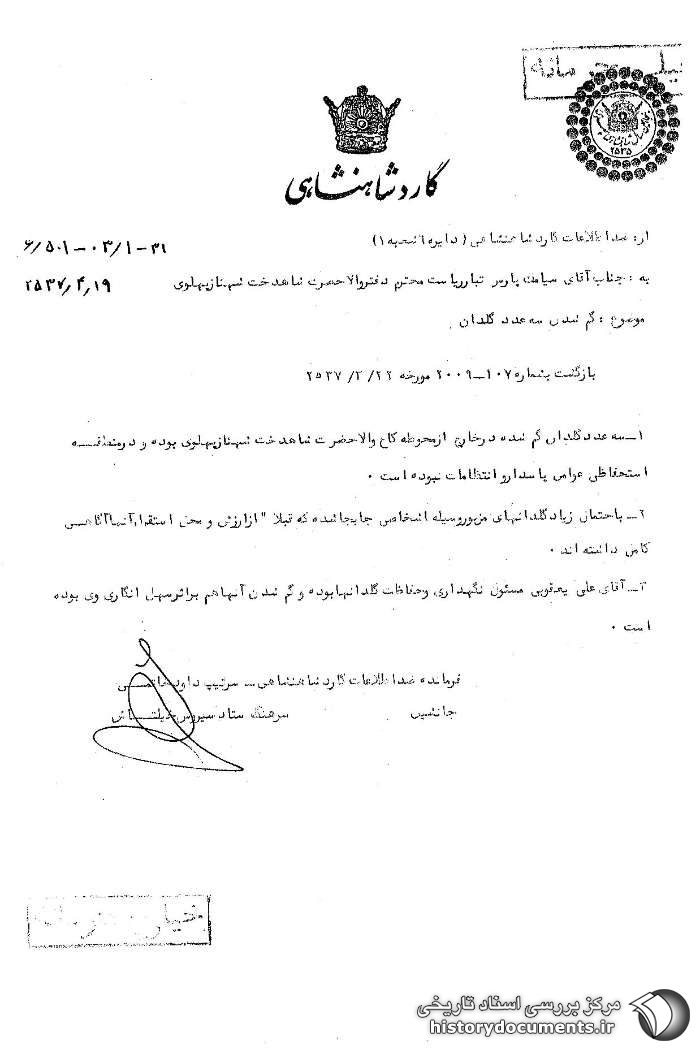 خیلی محرمانه
۲۵۳۵
گارد شاهنشاهی
از: ضد اطلاعات گارد شاهنشاهی (دایره ۶ شعبه ۱)
۶/۵۰۱-۰۳/۱-۳۱
به: جناب آقای سیامک پارس تبار ریاست محترم دفتر والاحضرت شاهدخت شهناز پهلوی
۲۵۳۷٫۴٫۱۹
موضوع: گم شدن سه عدد گلدان
بازگشت بشماره ۱۰۷-۲۰۰۹ مورخه ۲۵۳۷/۳/۲۲
۱- سه عدد گلدان گم شده در خارج از محوطه کاخ والاحضرت شاهدخت شهناز پهلوی بوده و در منطقه
استحفاظی عوامل پاسدار و انتظامات نبوده است .
۲- باحتمال زیاد گلدانهای مزبور وسیله اشخاصی جابجا شده که قبلا" از ارزش و محل استقرار آنها آگاهی
کامل داشته اند .
۳- آقای علی یعقوبی مسئول نگهداری و حفاظت گلدانها بوده و گم شدن آنها هم بر اثر سهل انگاری وی بوده
است .
فرمانده ضد اطلاعات گارد شاهنشاهی - سرتیپ داود
جانشین سرهنگ ستاد سیروس
خیلی محرمانه
مرکز بررسی اسناد تاریخی
historydocuments.ir